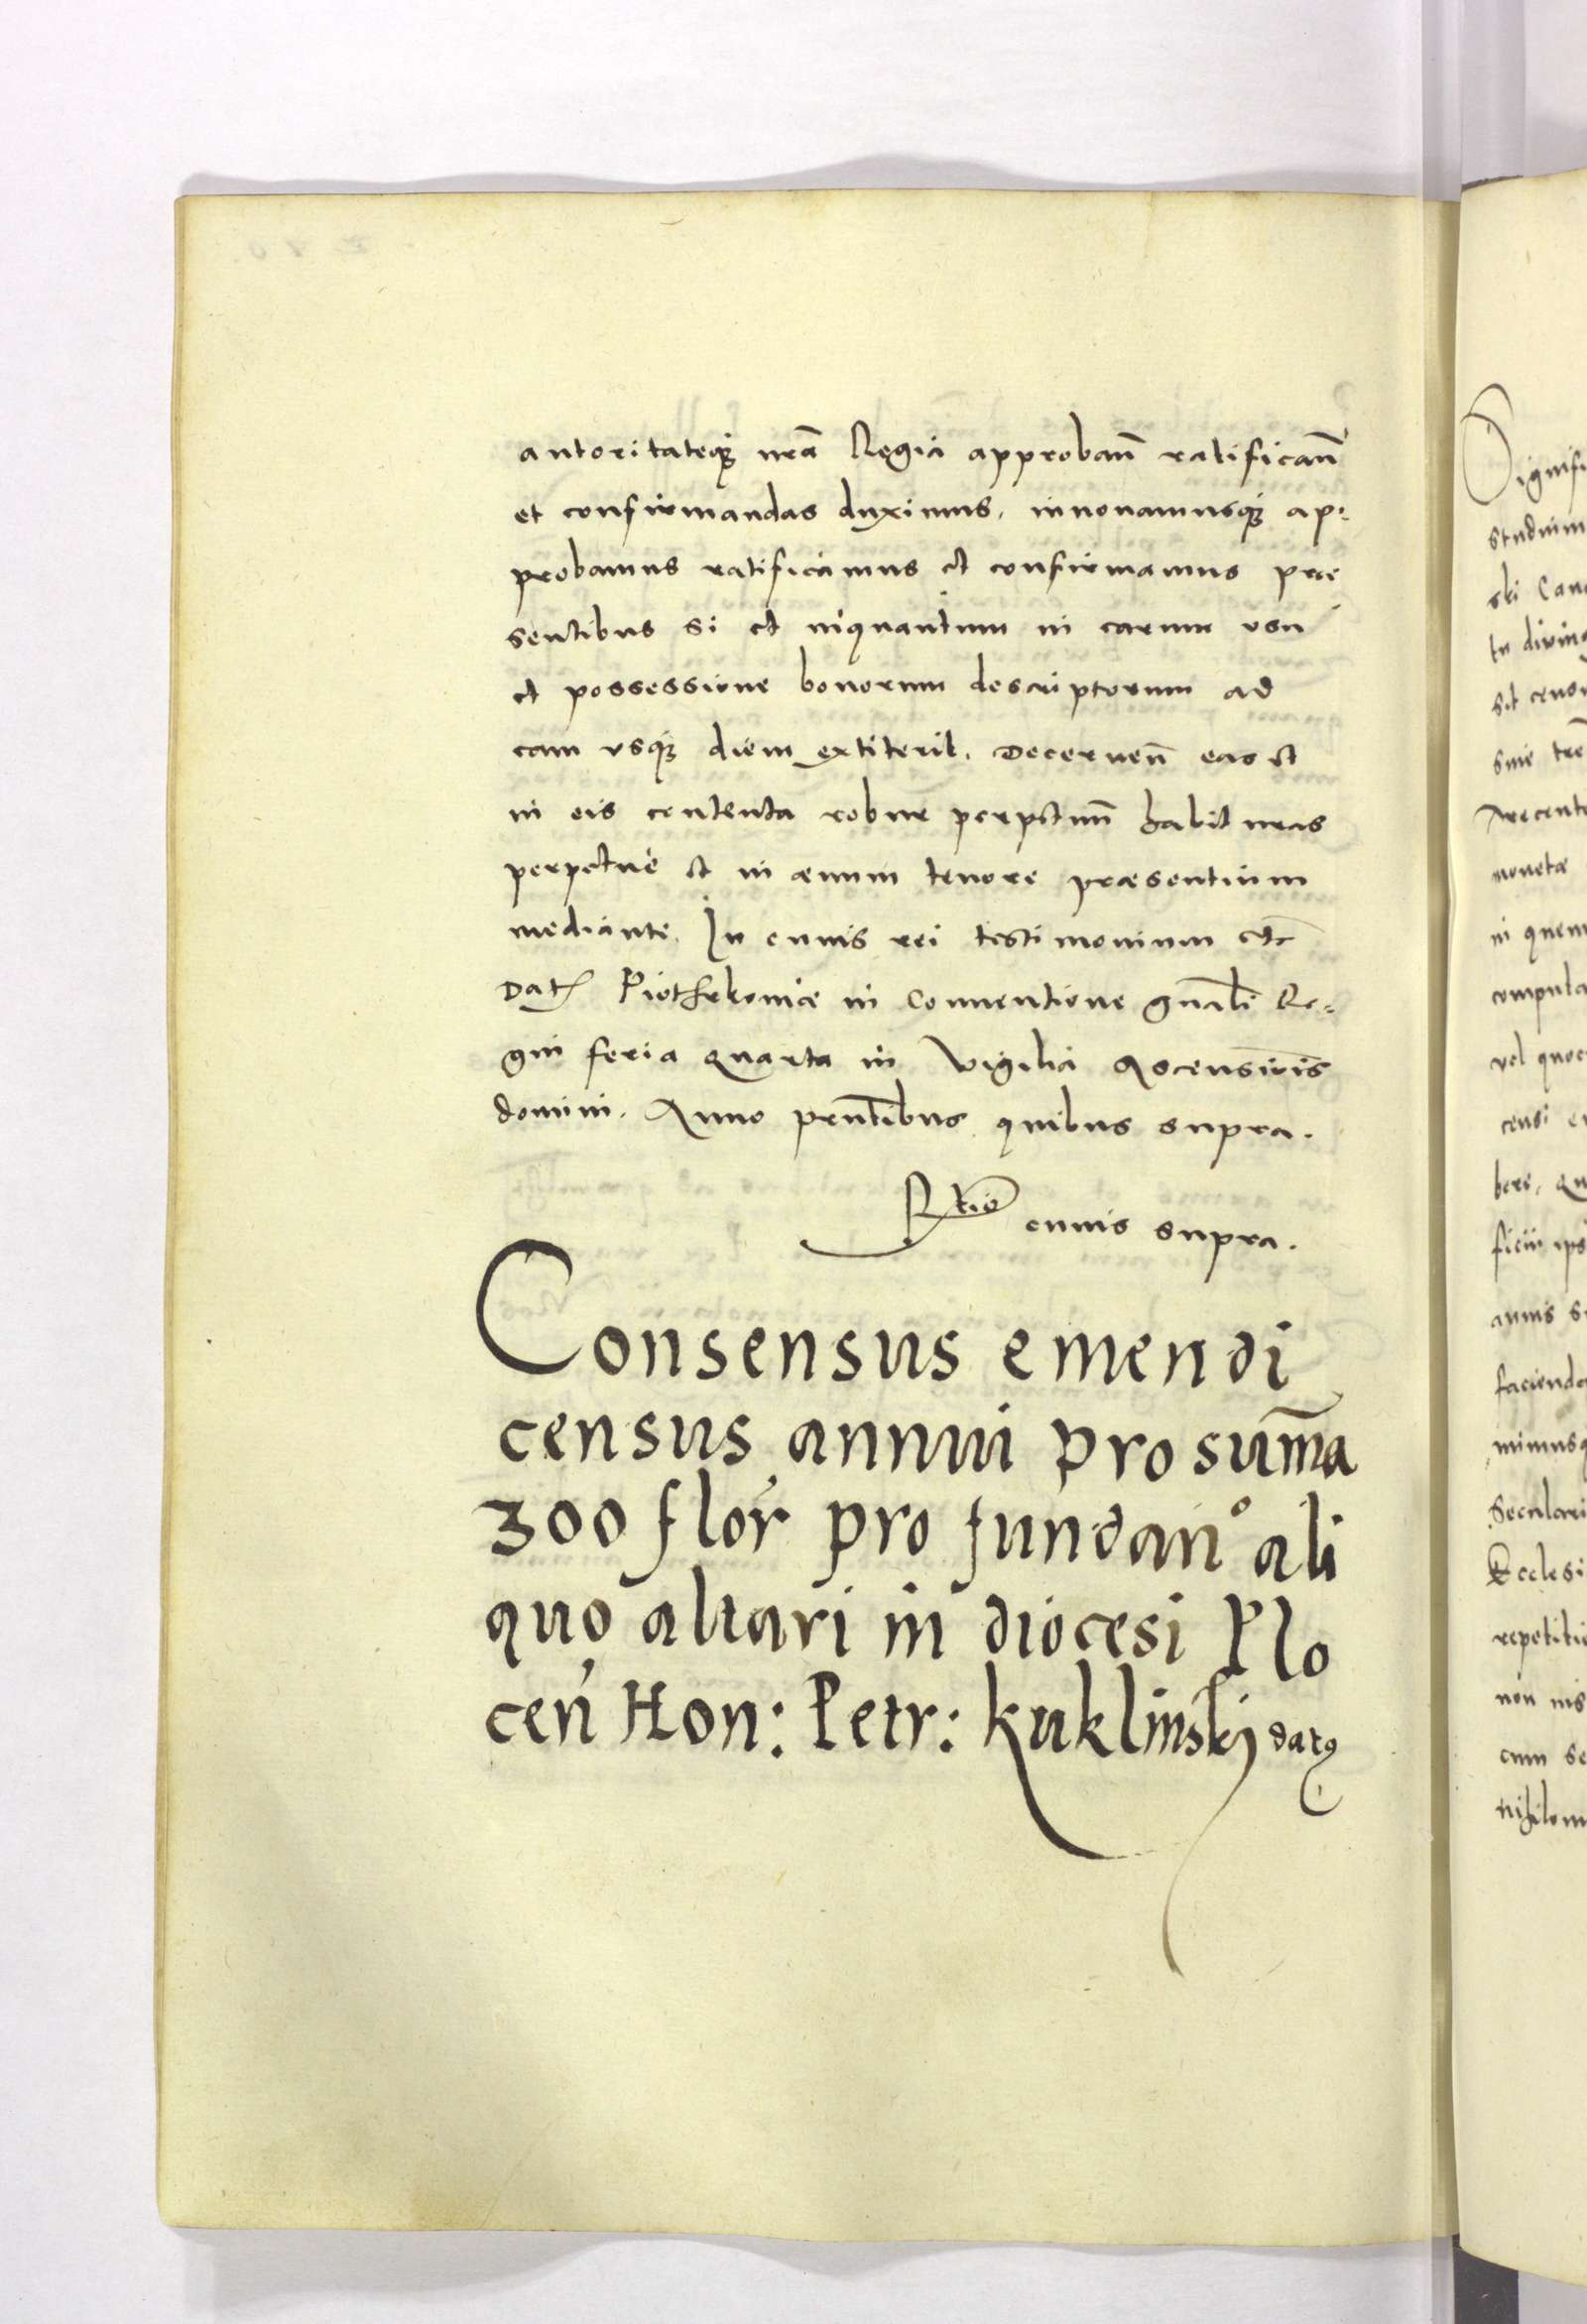 autoritateq3 nr̃a Regia approbañ ratificañ
et confirmandas duximus. innouamusq3 ap:
probamus ratificamus et confirmamus præ
sentibus si et inquantum in earum vsu
et possessione bonorum descriptorum ad
eam usq3 diem extiterit. Decerneñ eas et
in eis contenta robur perpetuũ habituras
perpetue et in æuum tenore præsentium
mediante. In cuius rei testimonium etc
Dat Piothrkouiæ in Conuentione gñali Re:
gni feria quarta in vigilia Ascensiõis
domini. Anno pr̃ntibus quibus supra.
Rtio cuius supra.
Consensus emendi
census annui pro sum̃a
300 flor pro fundañº ali
quo altari in diocesi Plo
ceñ Hon: Petr: Kuklinskj datꝯ
Dignifi
studuim
ski Can
tu diuin
sit censu
siue tre
Trecent
monetæ
in quem
computa
vel quoc
censi e
bere. Qu
ficiii ips
annis s
faciend
mimusq
Seculari
Ecclesi
repetiti
non nis
cum se
nihilom